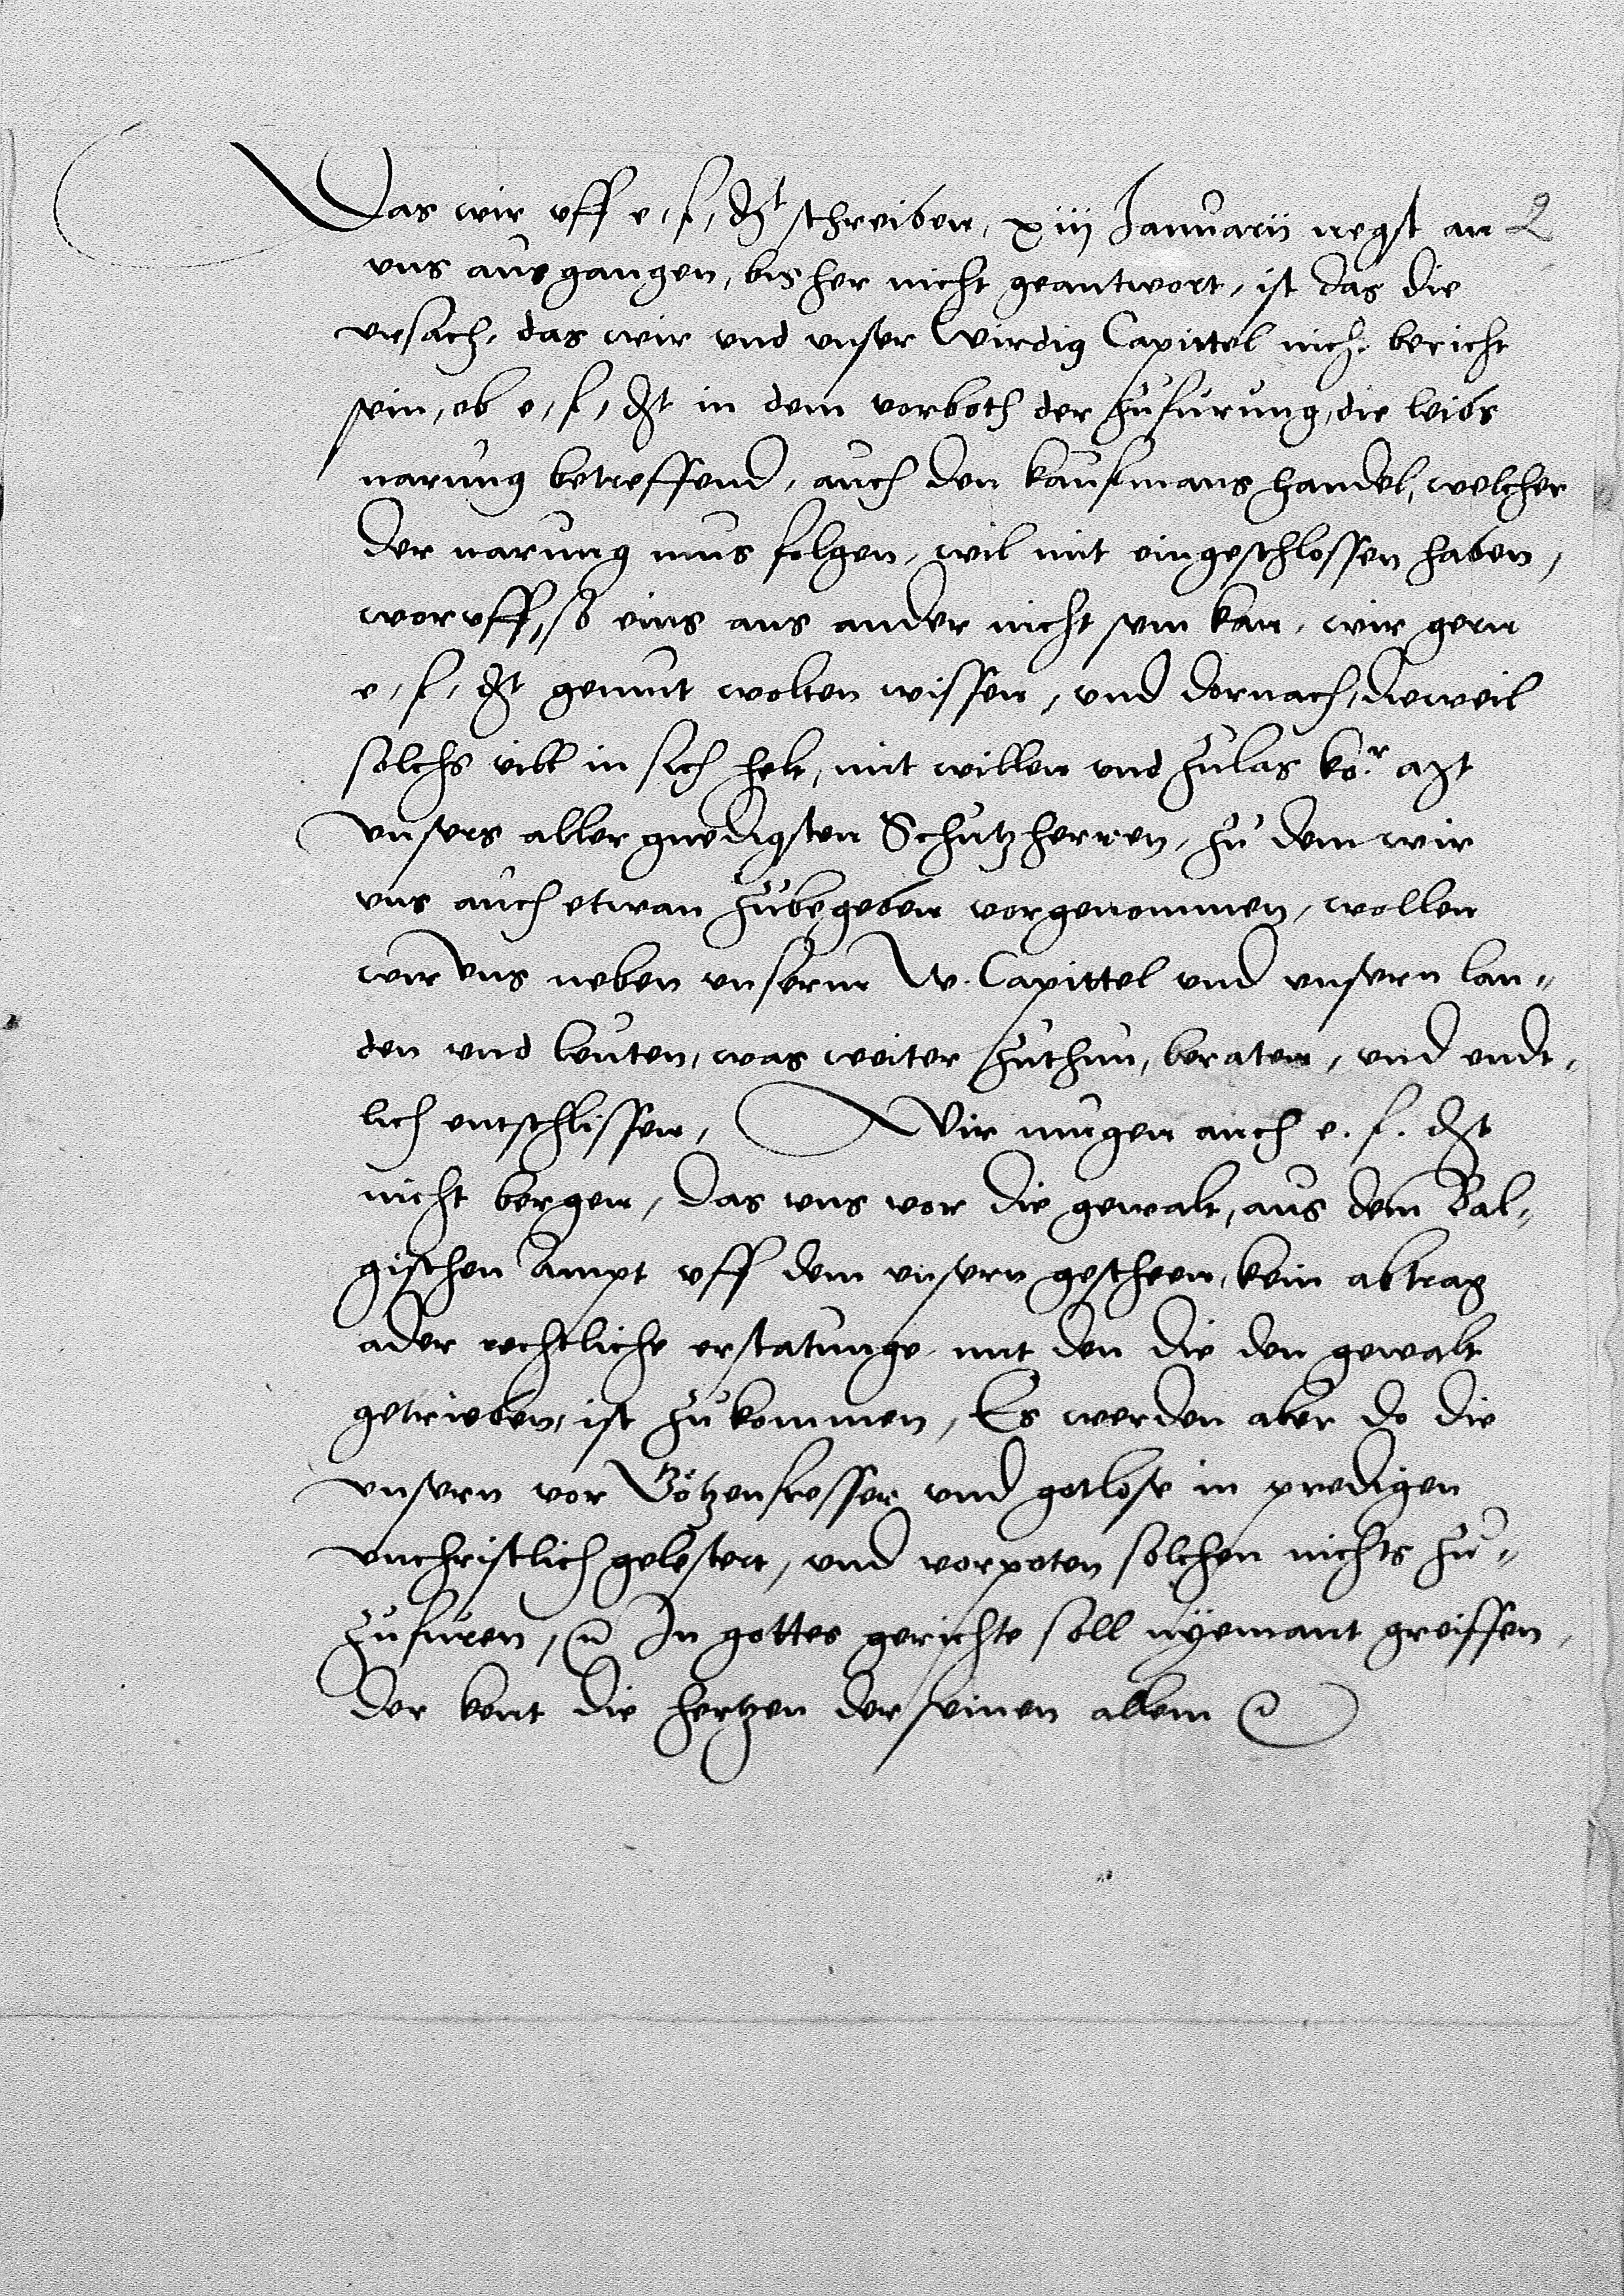 Das wir uff e, f, dht schreiben, xiij Januarii negst an 2
uns ausgangen, bisher nicht geantwort, ist das die
ursach, das wir und unser wirdig Capittel nicht bericht
sein, ob e, f, dht in dem vorboth der zufurung, die leibs
narung betreffend, auch den kaufmans handel, welcher
der narung mus folgen, wil mit eingeschlossen haben,
woruff, so eins ans ander nicht sein kan, wir gern
e, f, dht gemut wolten wissen, und dornach, dieweil
solchs vill in sich helt, mit willen und zulas ko.r
unsers aller gnedigsten Schutzherren, zu dem wir
uns auch etwan zubegeben vorgenommen, wollen
wir uns neben unserm W. Capittel und unsern lan-
den und leuten, was weiter zuthun, beraten, und endt-
lich entschlissen, Wir mugen auch e. f. dht
nicht bergen, das uns vor die gewalt, aus dem Bal-
gischen Ampt uff dem unsern gescheen, kein abtrag
ader rechtliche erstatunge mit den die den gewalt
getrieben, ist zukommen, Es werden aber do die
unsern vor Götzenfresser und gotlose in predigen
unchristlich gelestert, und vorpoten solchen nichts zu-
zufuren, In gottes gerichte soll nyemant greiffen,
der kent die hertzen der seinen allein